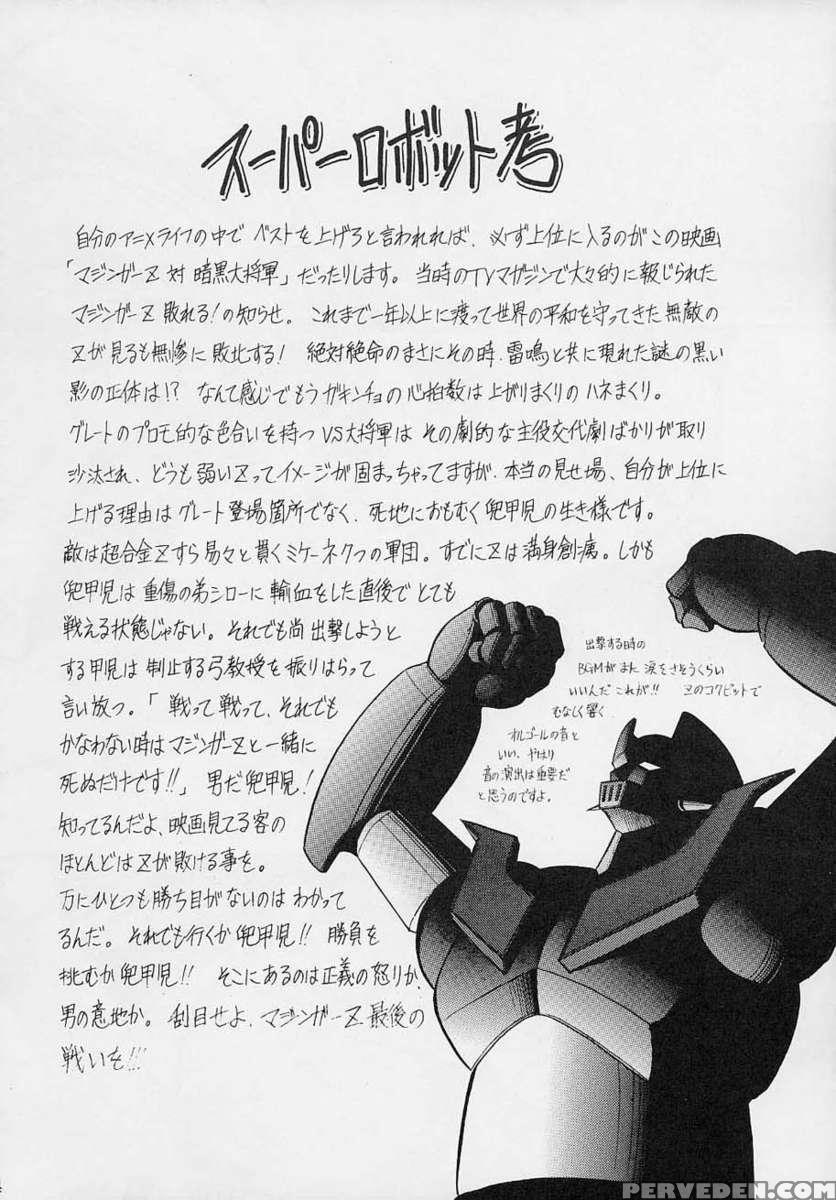 スーパーロボット考
自分のアニメライフの中で ベストを上げろと言われれば、必ず上位に入るのがこの映画
「マジンガーZ 対 暗黒大将軍」だったりします。当時のTVマガジンで大々的に報じられた
マジンガーZ 敗れる!の知らせ。これまで一年以上に渡って世界の平和を守ってきた無敵の
Zが見るも無惨に敗北する! 絶対絶命のまさにその時、雷鳴と共に現れた謎の黒い
影の正体は!? なんて感じでもうガキンチョの心拍数は上がりまくりのハネまくり。
グレートのプロモ的な色合いを持つVS大将軍は その劇的な主役交代劇ばかりが取り
沙汰され、どうも弱いZってイメージが固まっちゃってますが、本当の見せ場、自分が上位に
上げる理由はグレート登場箇所でなく、死地におもむく兜甲児の生き様です。
敵は超合金Zすら易々と貫くミケーネ7つの軍団。すでにZは満身創痍。しかも
兜甲児は重傷の弟シローに輸血をした直後でとても
戦える状態じゃない。それでも尚 出撃しようと
する甲児は 制止する弓教授を振りはらって
言い放つ。「戦って戦って、それでも
かなわない時はマジンガーZと一緒に
死ぬだけです!!」男だ兜甲児!
知ってるんだよ、映画見てる客の
ほとんどはZが敗ける事を。
万にひとつも勝ち目がないのは わかって
るんだ。それでも行くか兜甲児!! 勝負を
挑むか兜甲児!! そこにあるのは正義の怒りか、
男の意地か。刮目せよ、マジンガーZ 最後の
戦いを!!!
出撃する時の
BGMがまた 涙をさそうくらい
いいんだ これが!! Zのコクピットで
むなしく響く
オルゴールの音と
いい、やはり
音の演出は重要だ
と思うのですよ。
PERVEDEN.COM